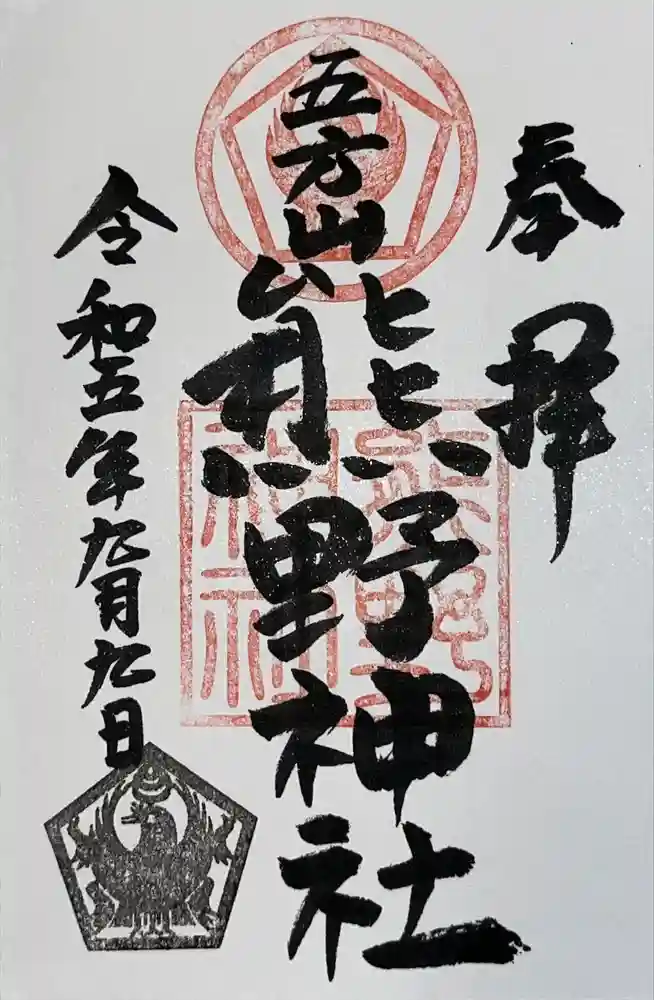 奉拝
五方山
熊野神社
熊野
神社
令和五年九月九日